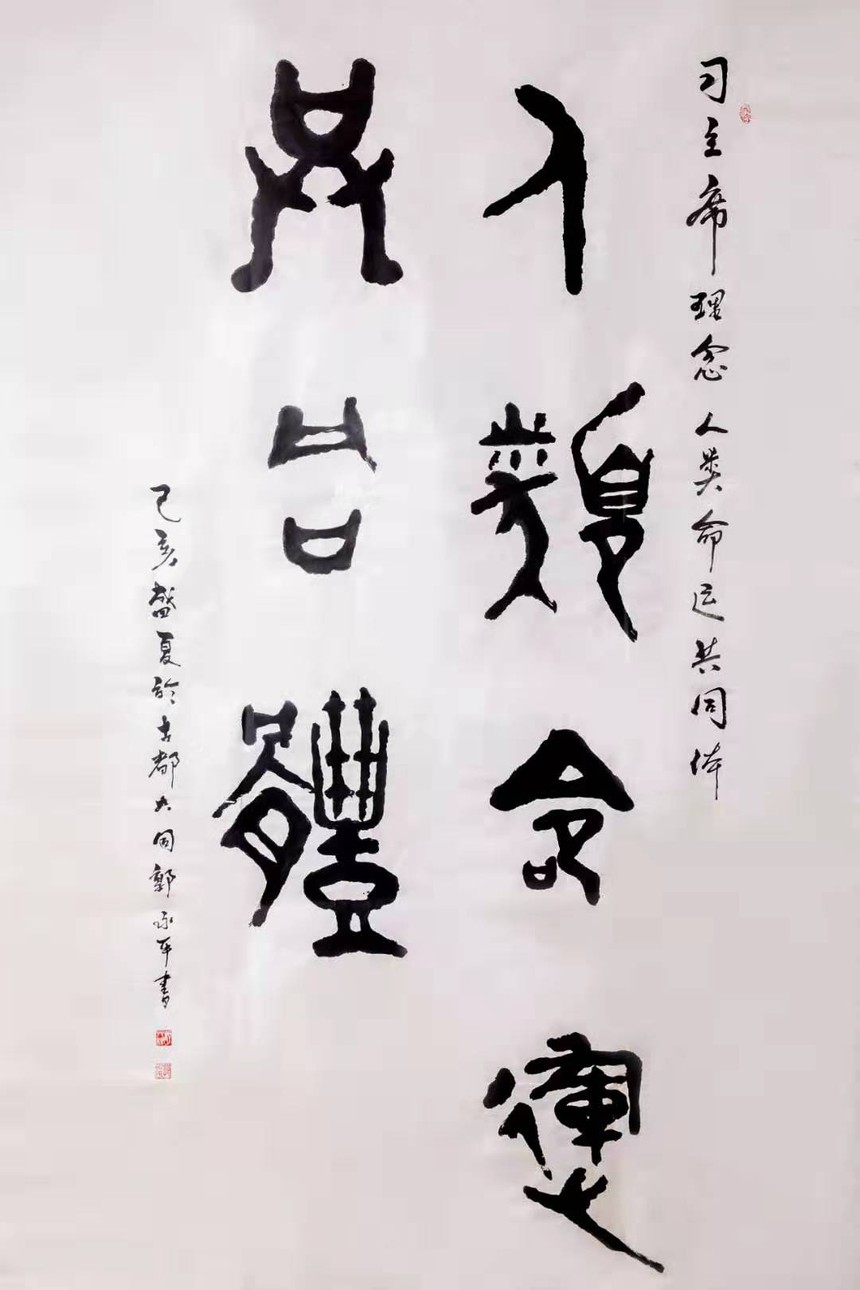 习主席理念人类命运共同体
人類命運
共同體
己亥盛夏於古都大同郭平書